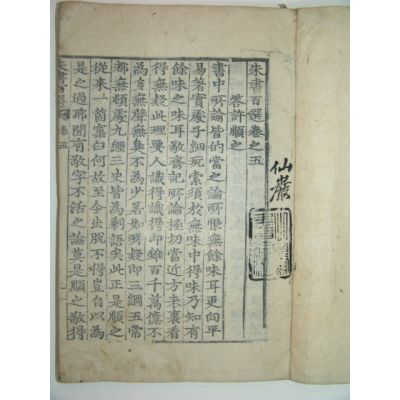 仙巖
朱書百選卷之五
答許順之
書中所論皆的當之論所恨無餘味耳更向平
易著實處子細玩索須於無味中得味乃知有
餘味之味耳敬齋記所論極切當近方表裏看
得無疑此理要人識得識得卽雖百千萬億不
爲多無聲無臭不爲少若如所疑卽三綱五常
都無頓處九經三史皆爲剩語矣此正是順之
從來一箇窠臼何故至今出脫不得豈自以爲
是之過耶聞有敬字不活之論莫是順之敬得
朱書百選 卷五